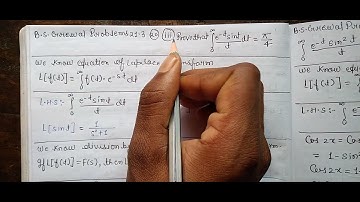 B.S. Grewal Problems 21.3 (20) (iii) Prove that ∫₀^∞ e^-t sint / t dt = π/4
we know equation of Laplace transform
L[f(t)] = ∫₀^∞ f(t). e^-st dt
L.H.S:- ∫₀^∞ e^-t sint / t dt
L[sint] = 1 / s²+1
we know division by
If L[f(t)] = F(s), then
∫₀^∞ e^-t sin²t / t
Cos2x =
= 1 - Sin
Cos2x = 1